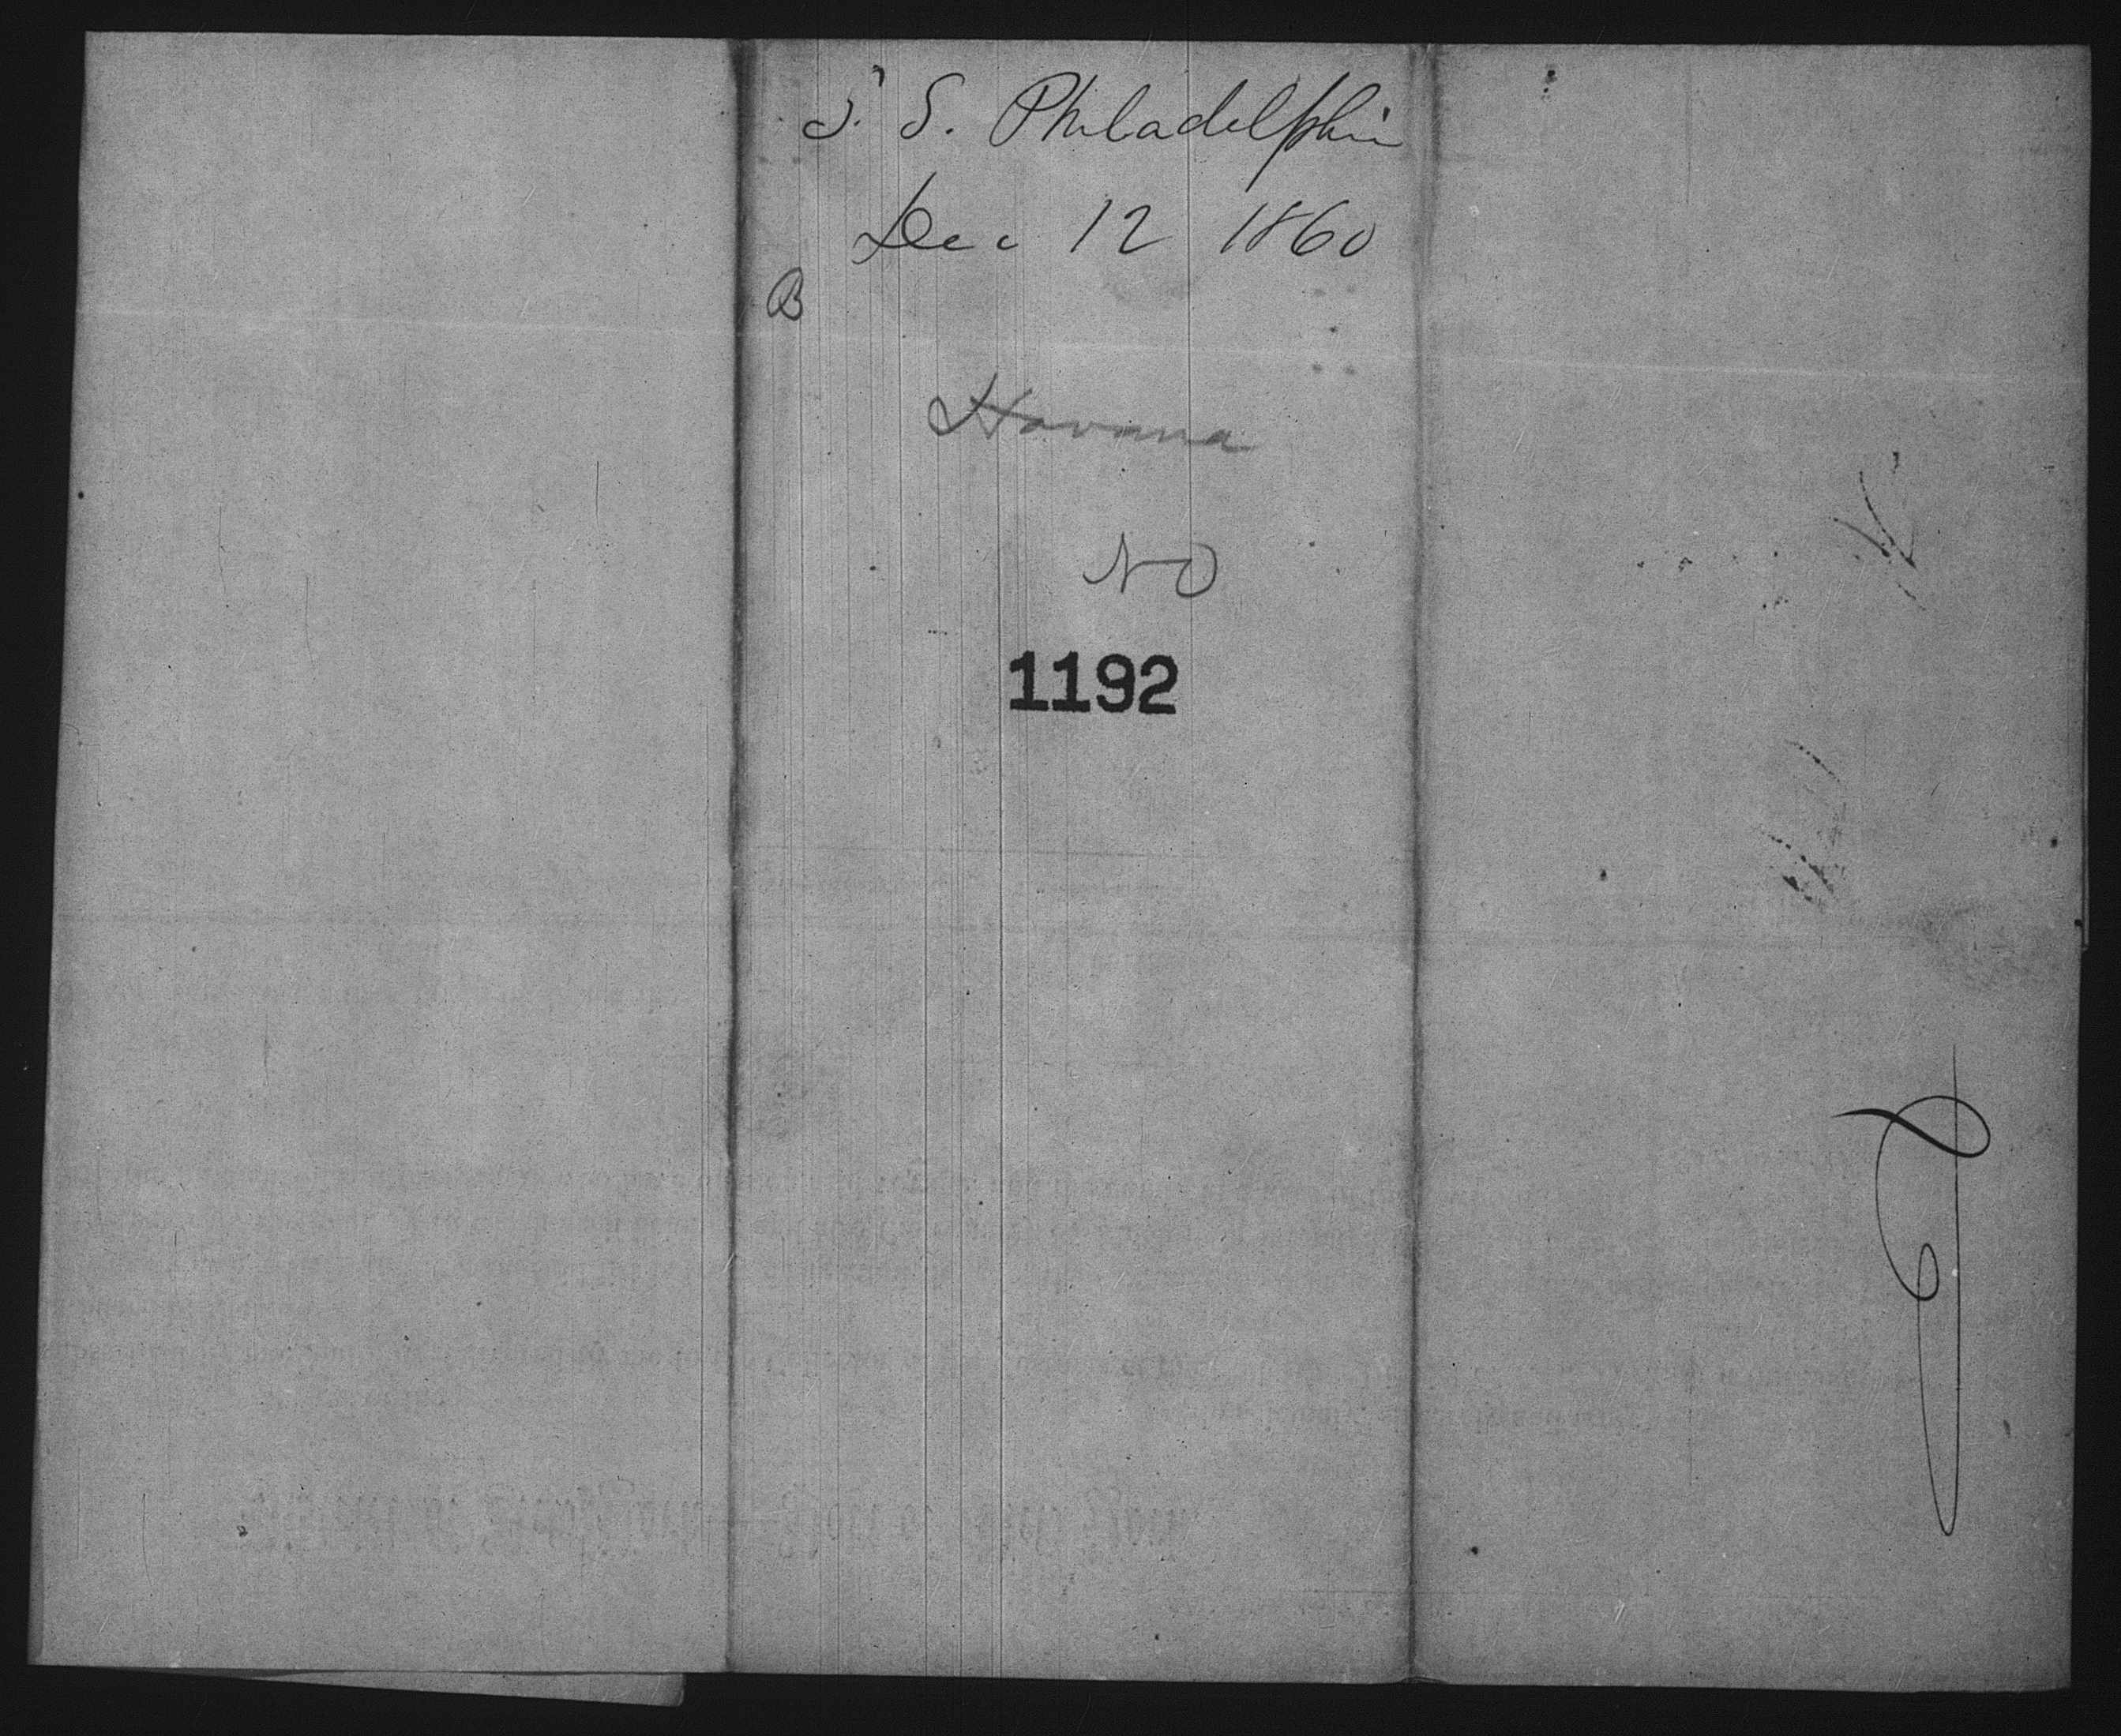 S. S. Philadelphia
Dec 12 1860
B
Havana
NO
1192